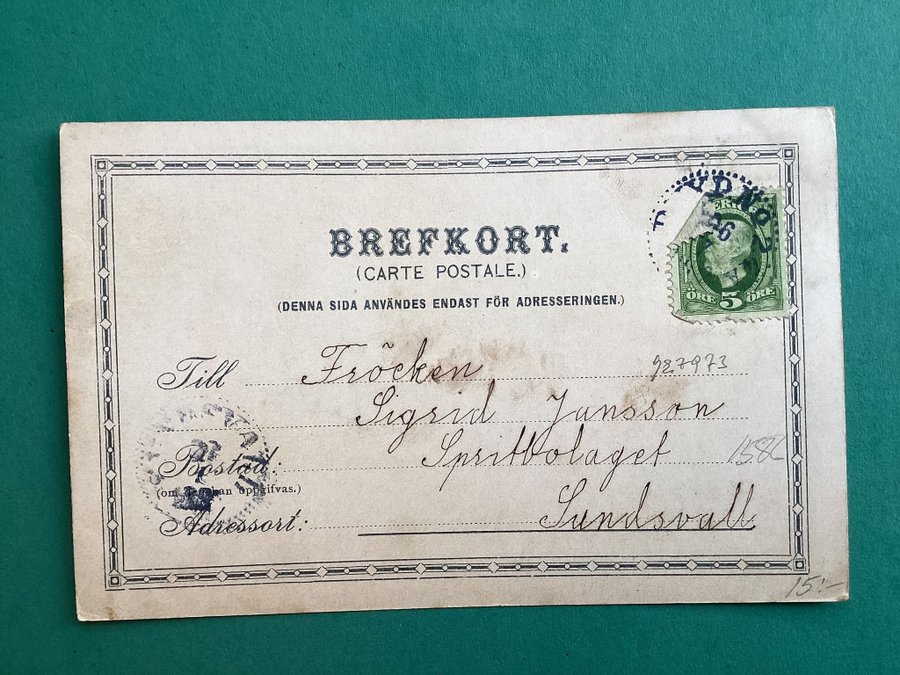 BREFKORT.
(CARTE POSTALE.)
(DENNA SIDA ANVÄNDES ENDAST FÖR ADRESSERINGEN.)
ÖRE 5 ÖRE
Till Fröcken
927973
Sigrid Jansson
Bostad: Spritbolaget
1586
(om den kan uppgifvas.)
Adressort: Sundsvall
15:-